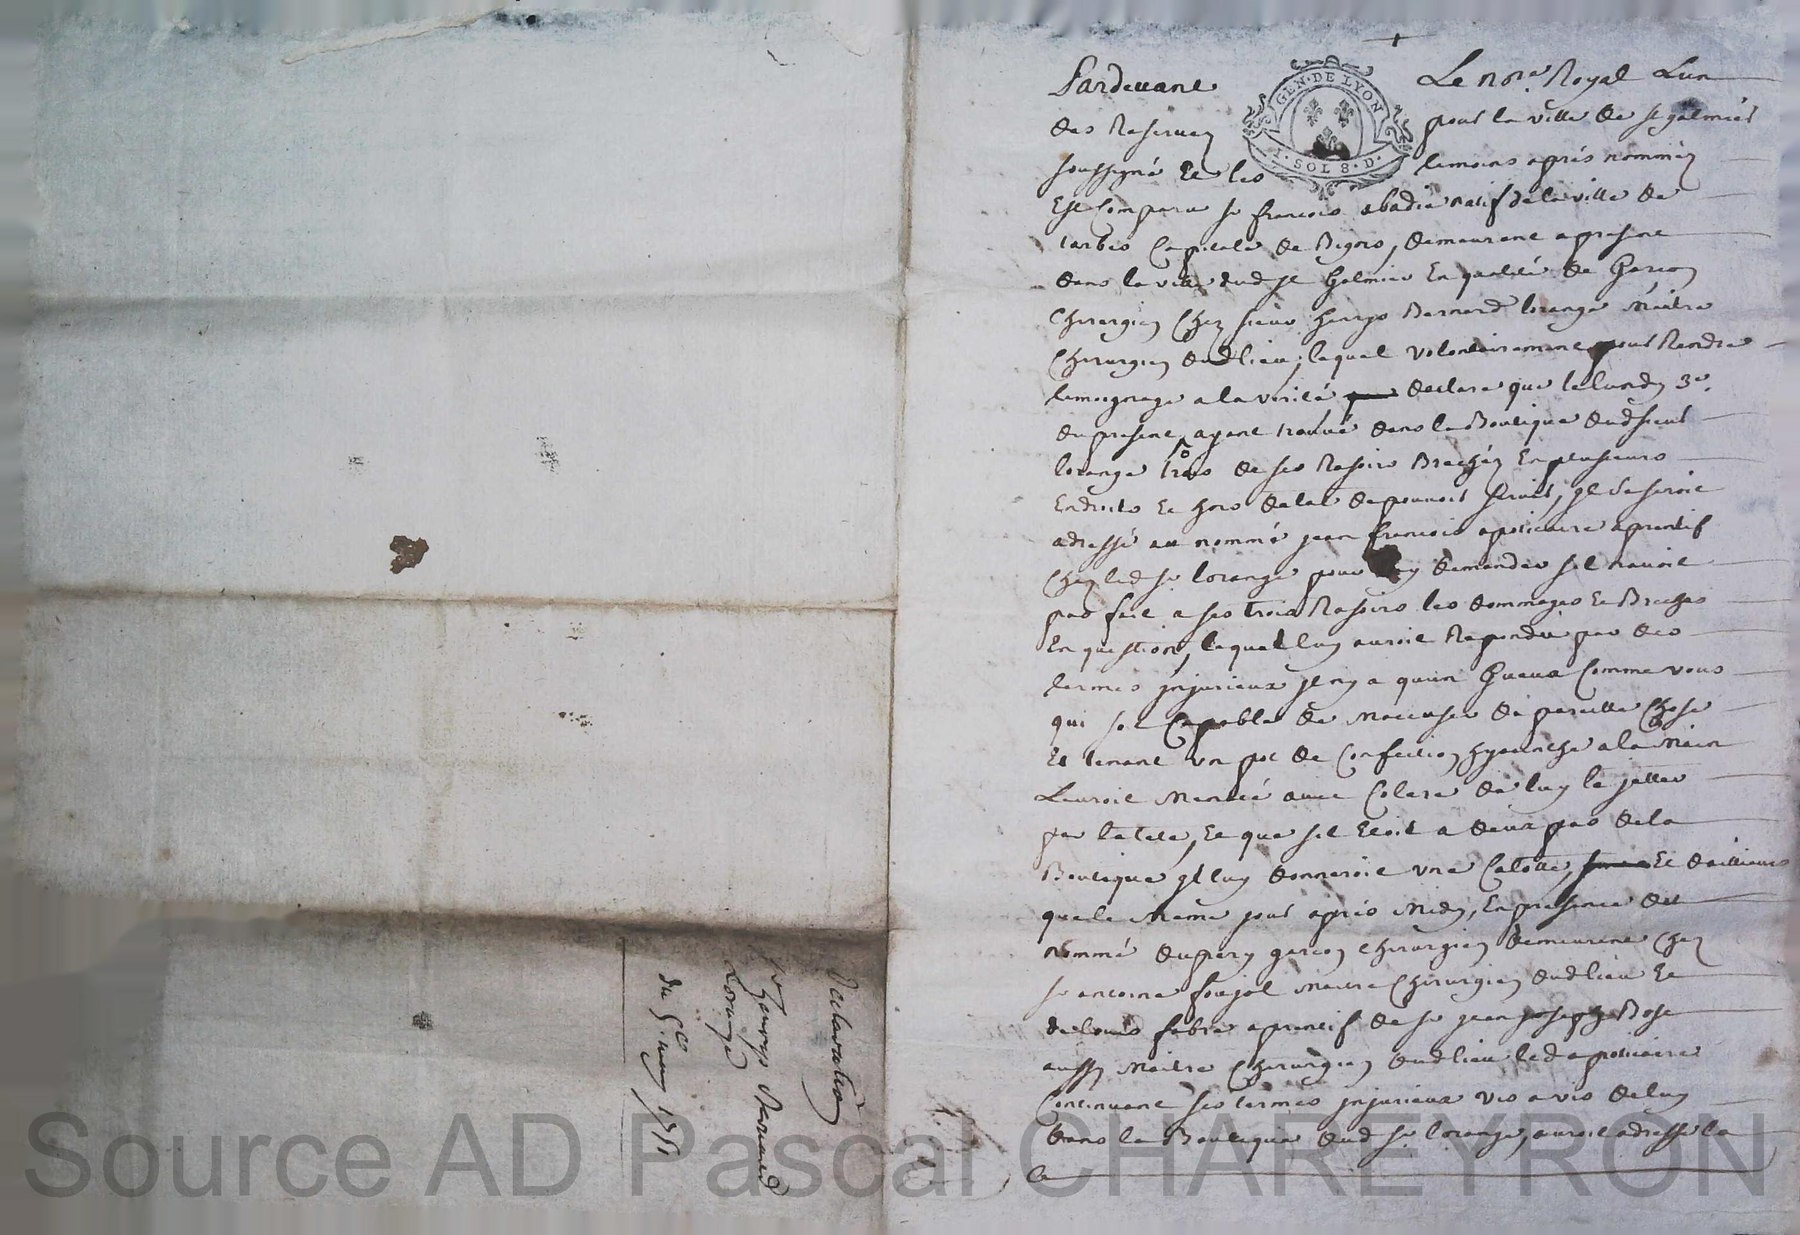 Pardevant Le no.re Royal L'un
GEN·DE LYON
1·SOL 8·D·
des Reservez pour la ville de st galmier
soussigné Et les temoins après nommés
Est Comparu sr francois abadie natif de la ville de
tarbes Capitale de Bigore, demeurant a present
dans la ville dud st Galmier En qualité de Garcon
Chirurgien Chez sieur henrys Bernard lorange Maitre
Chirurgien dud lieu, lequel volontairement pour Rendre
temoignage a la verité declare que le lundy 3e.
du present, ayant trouvé dans la Boutique dud sieur
lorange trois de ses Rasoirs Brechéz En plusieurs
Endroits Et hors detat de pouvoir servir, Il se seroit
adressé au nommé jean francois apoticaire aprentif
Chez led sr lorange pour luy demander sil navoit
pas fait a ses trois Rasoirs les dommages Et Breches
En question, lequel luy auroit Repondu par des
termes injurieux il ny a quun Gueux Comme vous
qui soit Capable de Maccuser de pareille Chose
Et tenant un pot de Confection hyacinthe a la Main
L'auroit Menacé avec Colere de luy le jetter
par la tete, Et que sil Etoit a deux pas de la
Boutique il luy donneroit une Calotte, Et dailleurs
que le Meme jour après Midy, En presence du
nommé dupery garcon chirurgien demeurant Chez
sr antoine foujol Maitre Chirurgien dud lieu Et
de louis fabre aprentif de sr jean joseph Bose
aussy Maitre Chirurgien dud lieu led apoticaire
Continuant ses termes injurieux vis a vis de luy
dans la Boutique dud sr lorange, auroit adressé la
Declaration
pr henrys Bernard
Lorange
du 5e may 1751
Source AD Pascal CHAREYRON